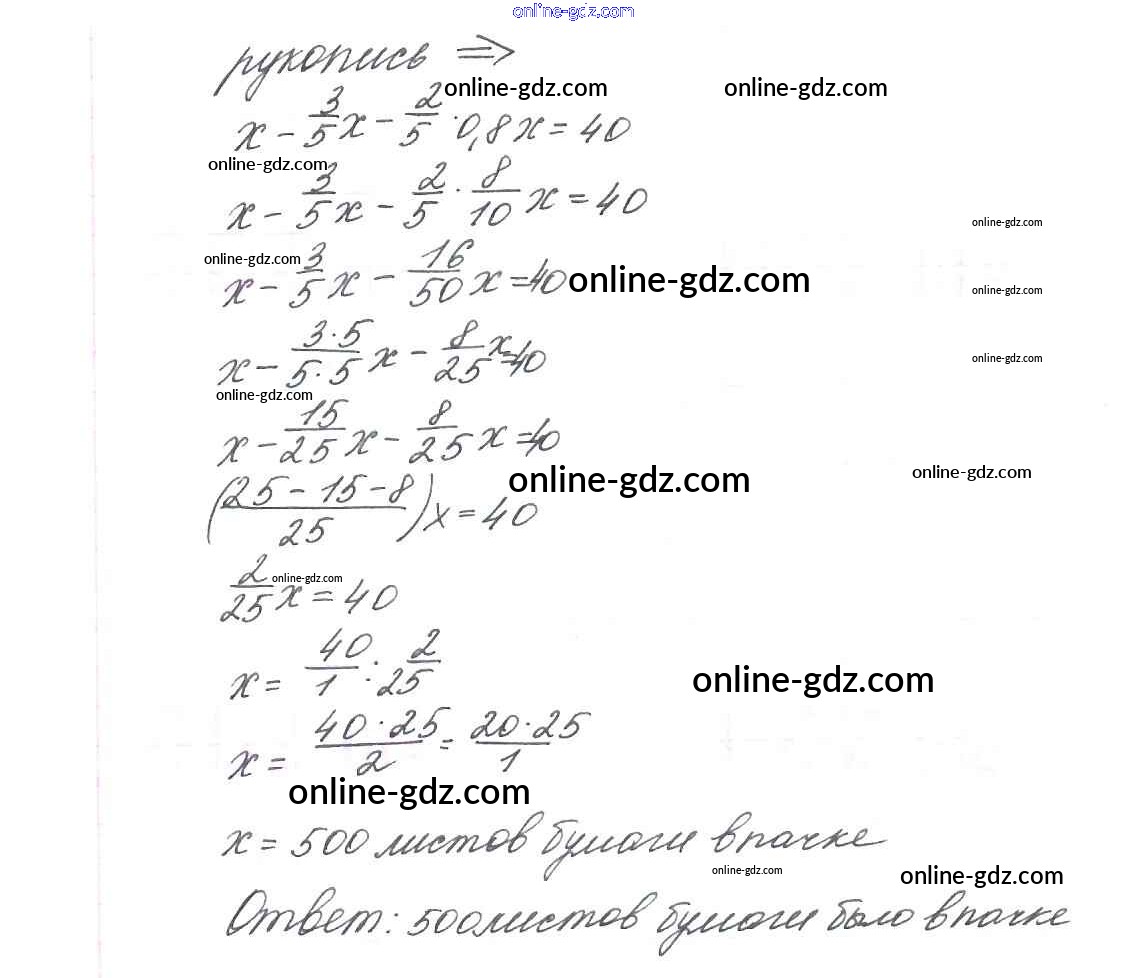 online-gdz.com
рукопись ⇒
online-gdz.com online-gdz.com
x - 3/5 x - 2/5 · 0,8x = 40
online-gdz.com
x - 3/5 x - 2/5 · 8/10 x = 40
online-gdz.com
online-gdz.com
x - 3/5 x - 16/50 x = 40
online-gdz.com
online-gdz.com
x - 3·5/5·5 x - 8/25 x = 40
online-gdz.com
online-gdz.com
x - 15/25 x - 8/25 x = 40
online-gdz.com
online-gdz.com
(25 - 15 - 8/25) x = 40
online-gdz.com
2/25 x = 40
x = 40/1 : 2/25
online-gdz.com
x = 40·25/2 = 20·25/1
online-gdz.com
x = 500 листов бумаги в пачке
online-gdz.com
online-gdz.com
Ответ: 500 листов бумаги было в пачке